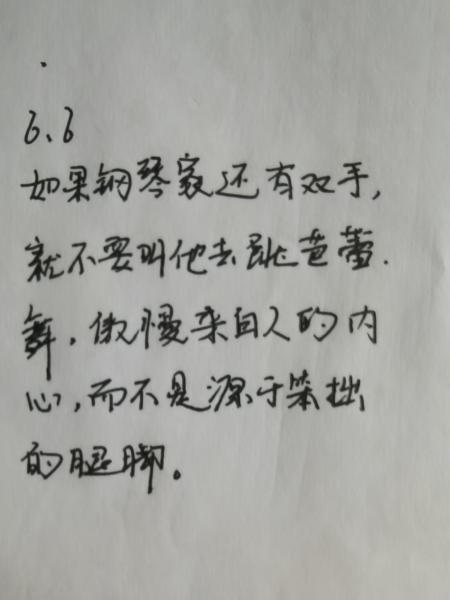 6.6
如果钢琴家还有双手，
就不要叫他去跳芭蕾.
舞，傲慢来自人的内
心，而不是源于笨拙
的腿脚。